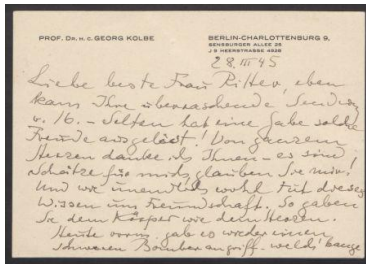 PROF. DR. H. C. GEORG KOLBE
BERLIN-CHARLOTTENBURG 9,
SENSBURGER ALLEE 25
J 9 HEERSTRASSE 4528
28. III 45
Liebe beste Frau Ritter, eben
kam Ihre überraschende Sendung
v. 16. – Selten hat eine Gabe solche
Freude ausgelöst! Von ganzem
Herzen danke ich Ihnen – es sind
Schätze für mich, glauben Sie mir!
Und wie unendlich wohl tut dieses
Wissen um Freundschaft. So gaben
Sie dem Körper wie dem Herzen.
Heute vorm. gab es wieder einen
schweren Bomberangriff. welch' bange